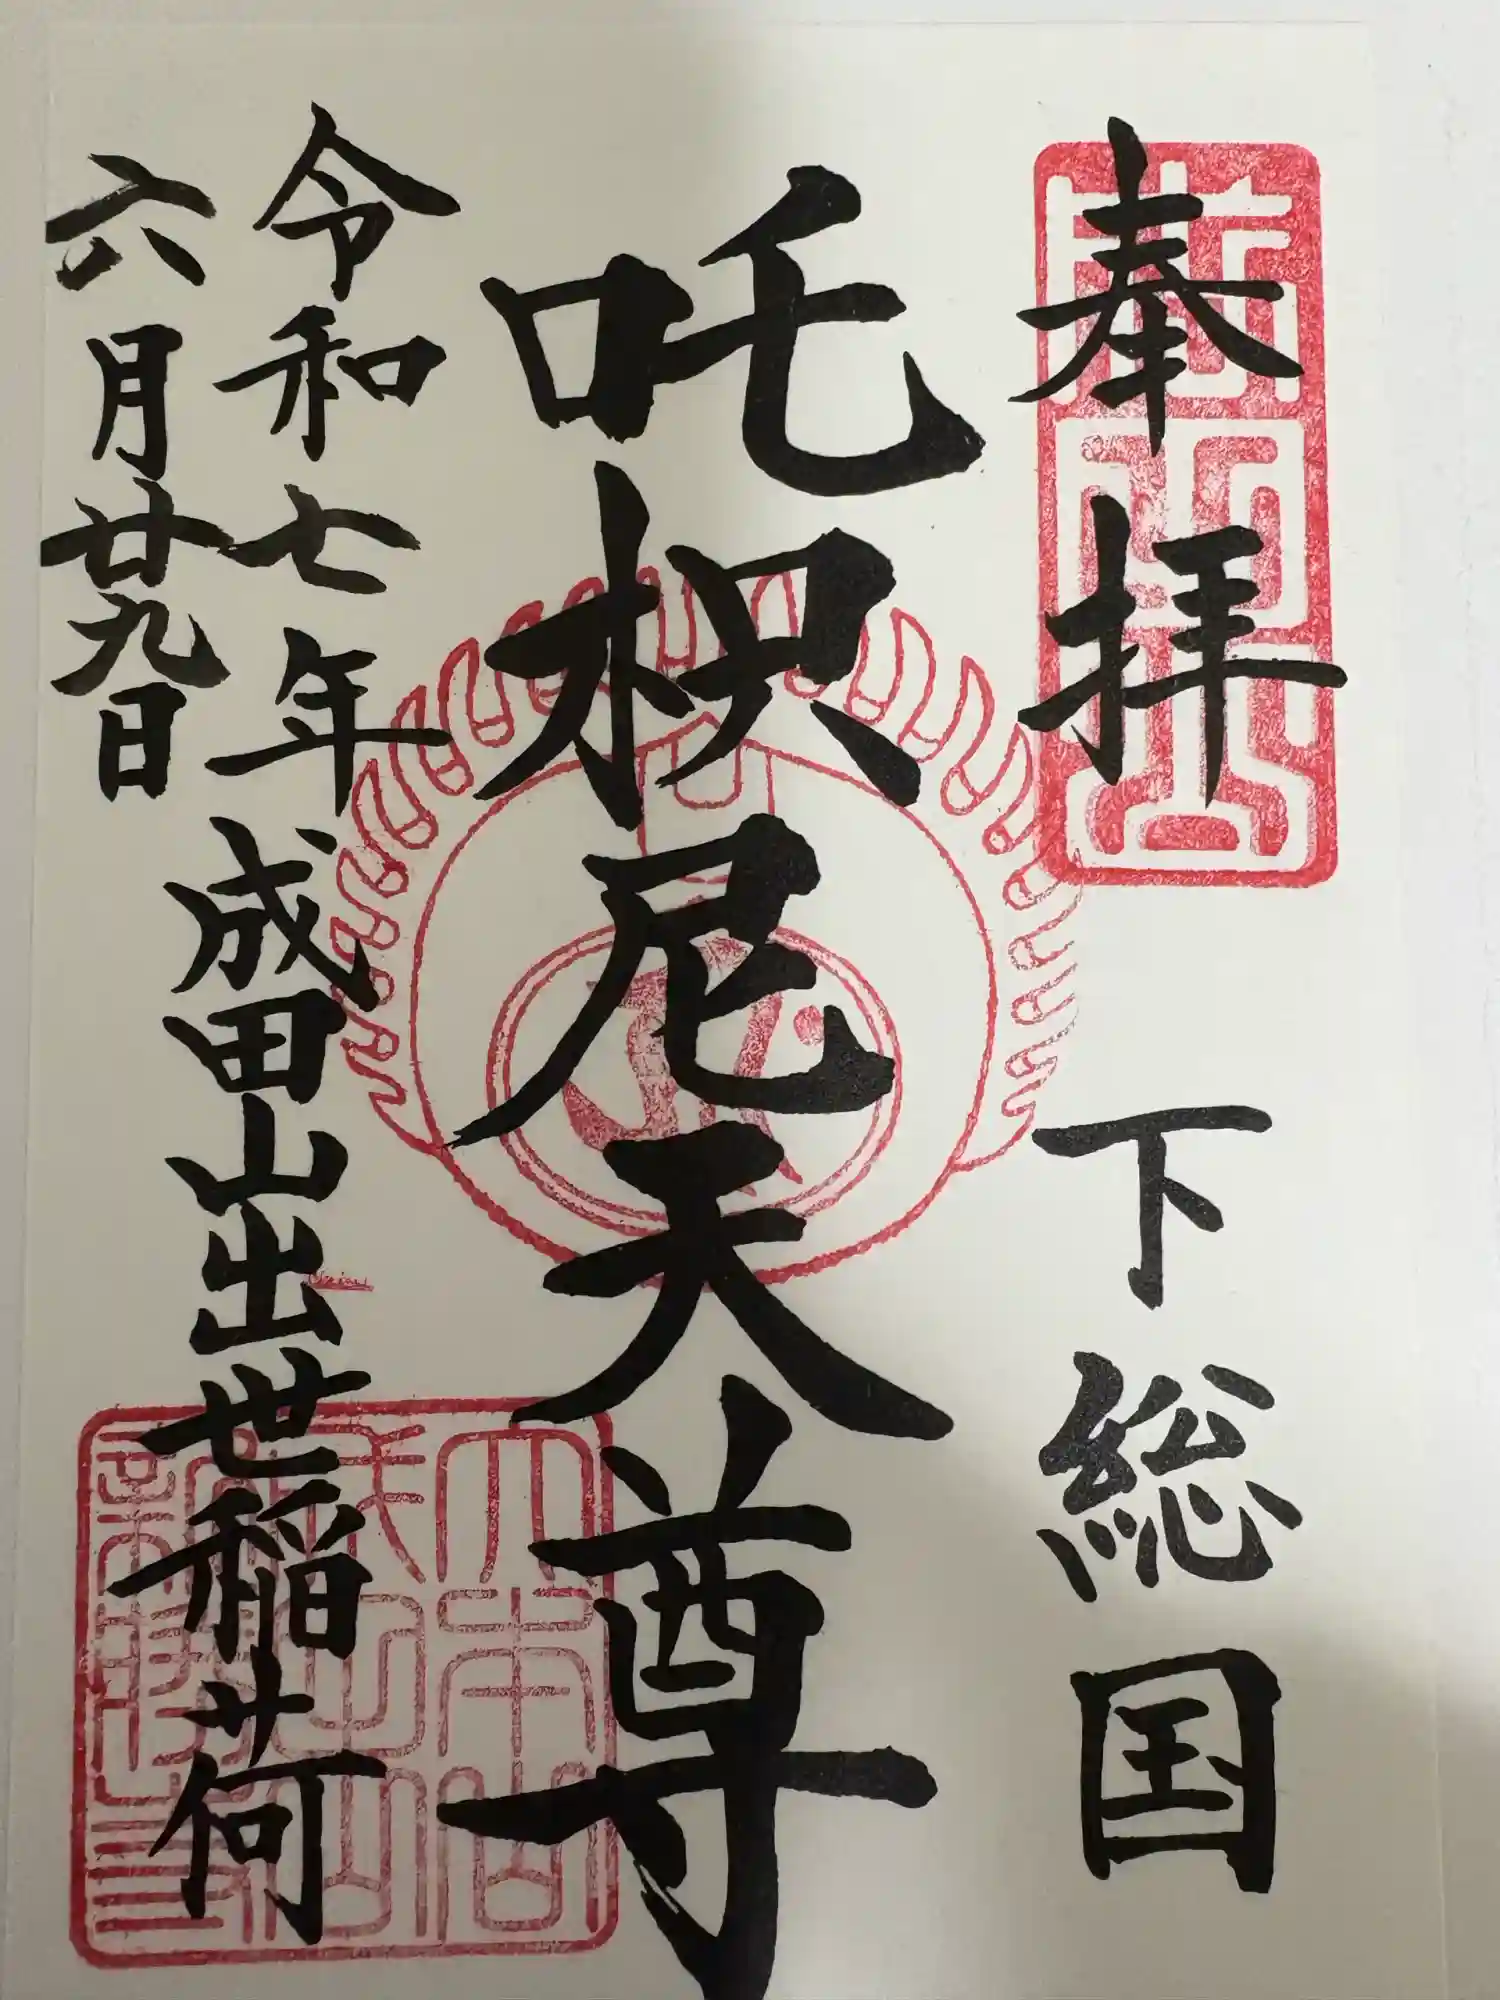 奉拝 下総国
吒枳尼天尊
令和七年 成田山出世稲荷
六月廿九日